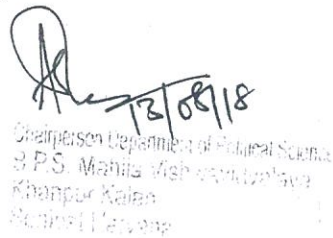 13/08/18
Chairperson Department of Political Science
B.P.S. Mahila
Khanpur Kalan
Sonipat Haryana